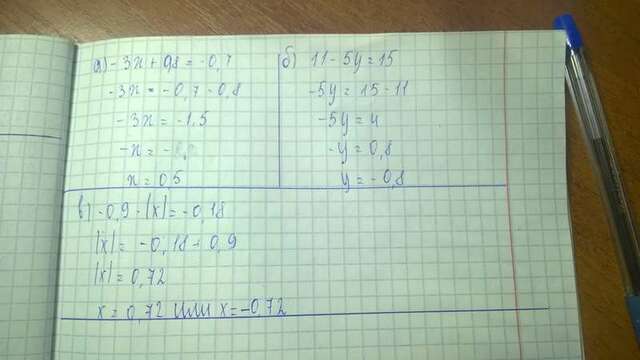 а) -3x + 0,8 = -0,7
-3x = -0,7 - 0,8
-3x = -1,5
-x = -
x = 0,5
б) 11 - 5y = 15
-5y = 15 - 11
-5y = 4
-y = 0,8
y = -0,8
в) -0,9 · |x| = -0,18
|x| = -0,18 + 0,9
|x| = 0,72
x = 0,72 или x = -0,72